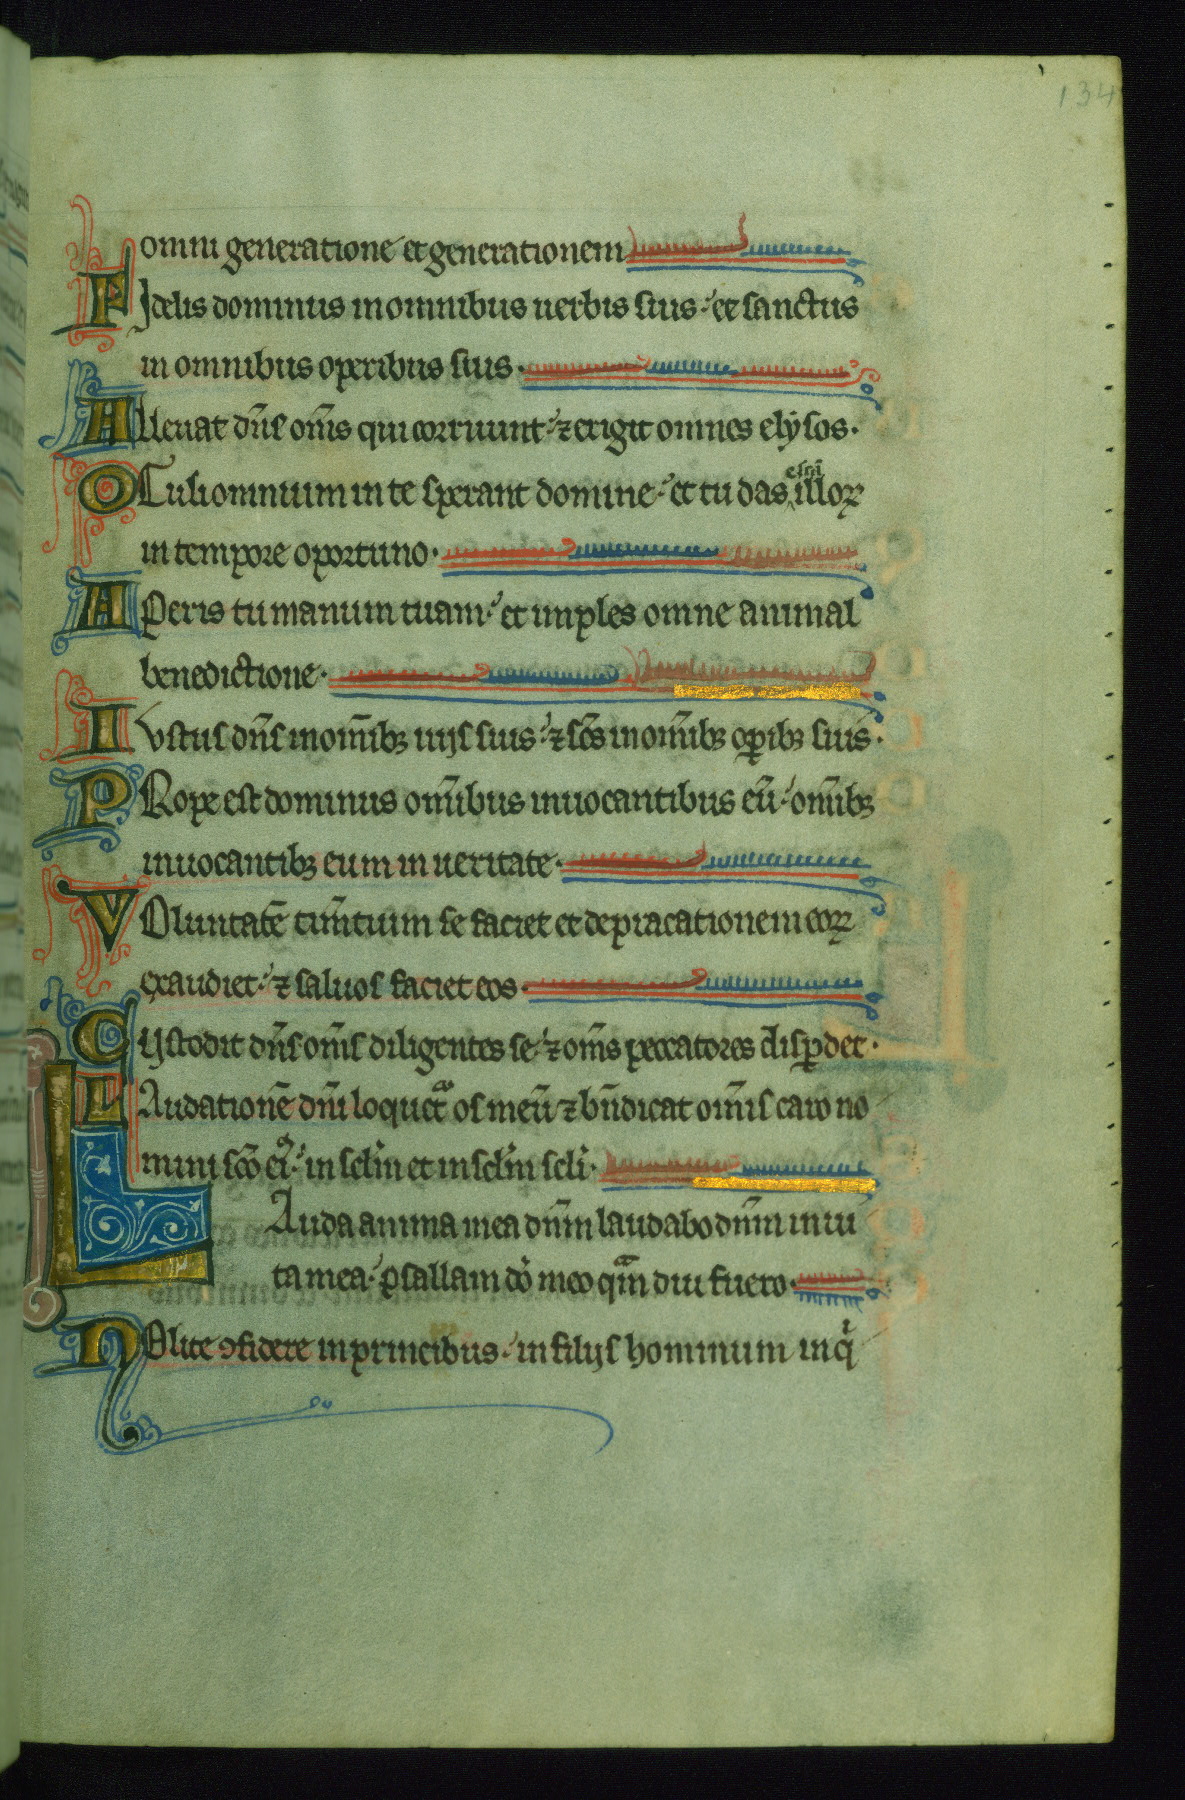 134
omni generatione et generationem
Fidelis dominus in omnibus uerbis suis: et sanctus
in omnibus operibus suis.
Alleuat dn̄s om̄s qui corruunt: ⁊ erigit omnes elysos.
OCuli omnium in te sperant domine: et tu das escā illoꝝ
in tempore oportuno.
Aperis tu manum tuam: et imples omne animal
benedictione.
Iustus dn̄s in om̄ibꝫ uijs suis: ⁊ sc̄s in om̄ibꝫ oꝑibꝫ suis.
PRope est dominus om̄ibus inuocantibus eū: om̄ibꝫ
inuocantibꝫ eum in ueritate.
VOluntatē tim̄tium se faciet et depracationem eoꝝ
exaudiet: ⁊ saluos faciet eos.
Cystodit dn̄s om̄s diligentes se: ⁊ om̄s peccatores disꝑdet.
LAudationē dn̄i loquetͣ os meū ⁊ bn̄dicat om̄is caro no
mini sc̄o eiꝰ: in sclm̄ et in sclm̄ scli.
LAuda anima mea dn̄m laudabo dn̄m in ui
ta mea: psallam dō meo qm̄ diu fuero.
NOlite ꝯfidere in principibus: in filijs hominum in qͥ